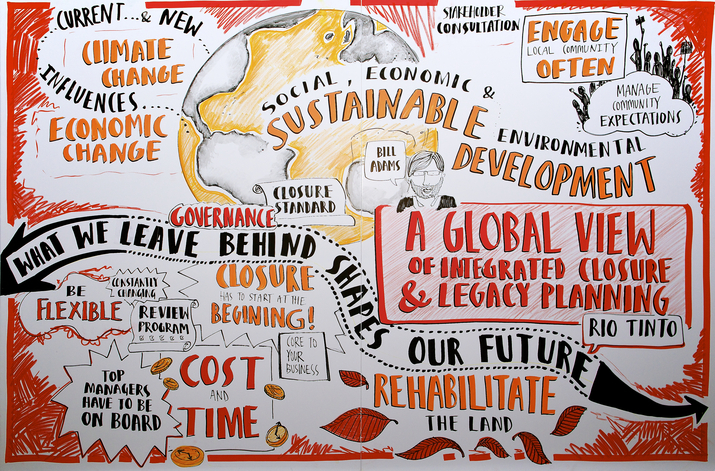 CURRENT...& NEW
CLIMATE
CHANGE
INFLUENCES....
ECONOMIC
CHANGE
SOCIAL, ECONOMIC &
SUSTAINABLE
ENVIRONMENTAL
DEVELOPMENT
STAKEHOLDER
CONSULTATION
ENGAGE
LOCAL COMMUNITY
OFTEN
MANAGE
COMMUNITY
EXPECTATIONS
BILL
ADAMS
CLOSURE
STANDARD
GOVERNANCE
A GLOBAL VIEW
OF INTEGRATED CLOSURE
& LEGACY PLANNING
RIO TINTO
WHAT WE LEAVE BEHIND SHAPES OUR FUTURE
BE
FLEXIBLE
CONSTANTLY
CHANGING
REVIEW
PROGRAM
CLOSURE
HAS TO START AT THE
BEGINING!
CORE TO
YOUR
BUSINESS
TOP
MANAGERS
HAVE TO BE
ON BOARD
COST
AND
TIME
REHABILITATE
THE LAND